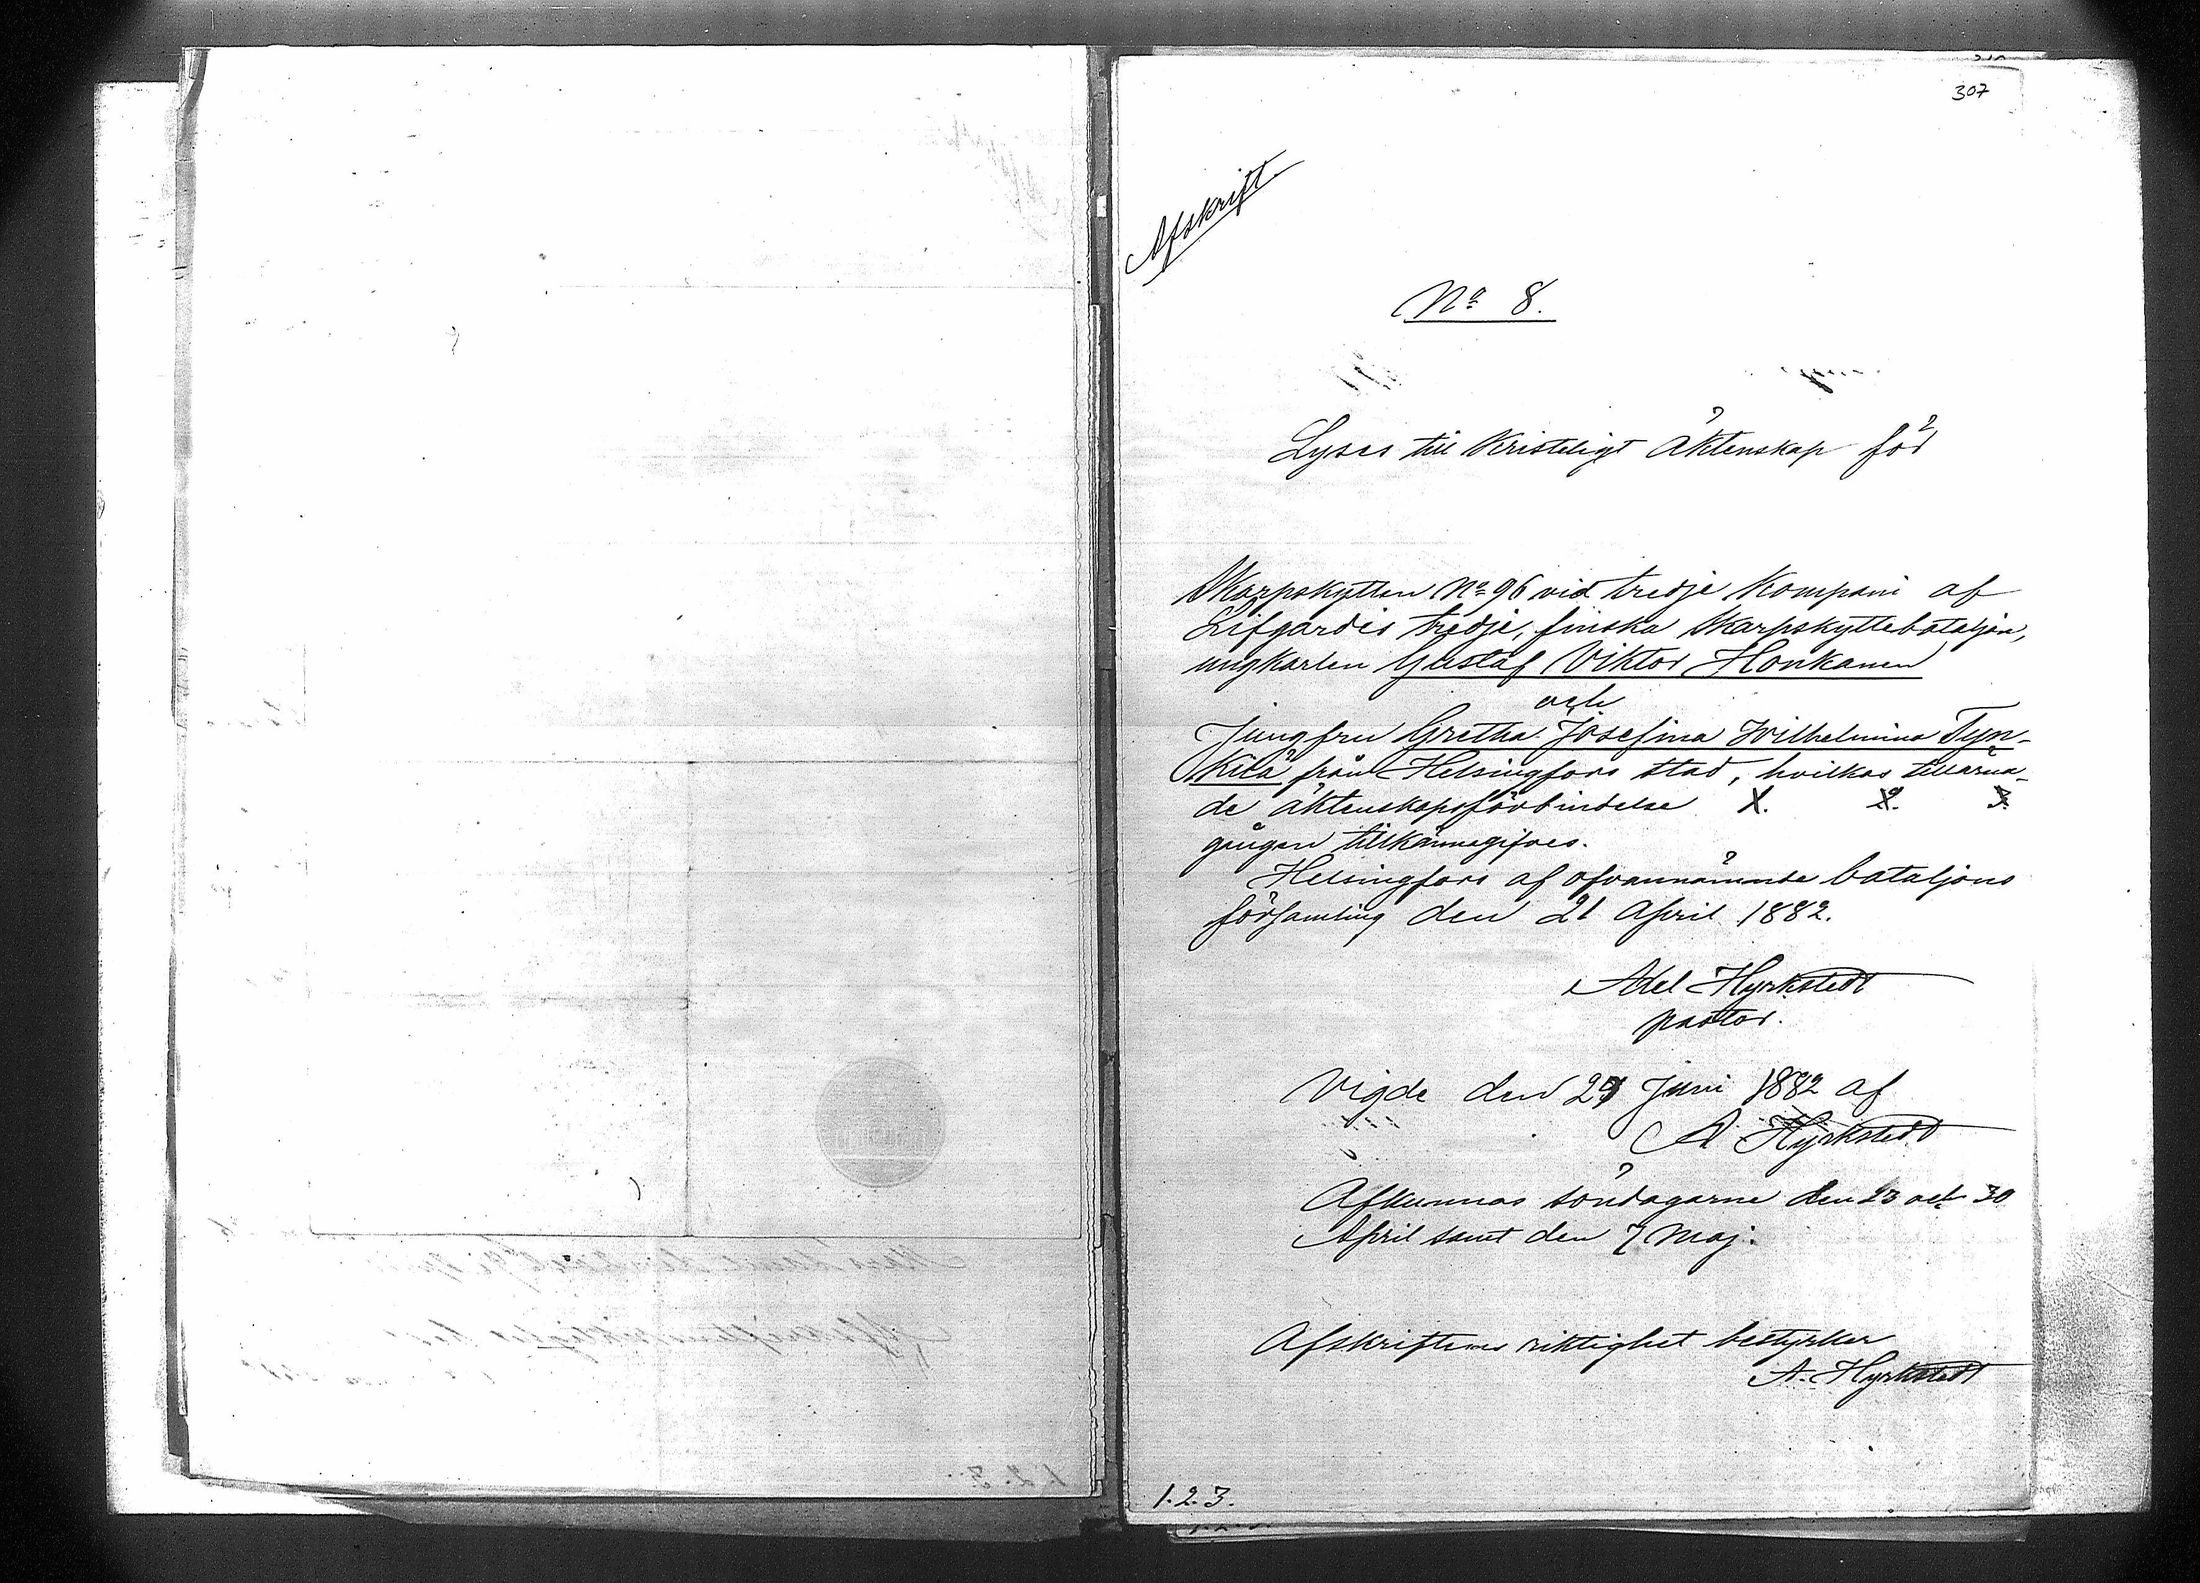 307
Afskrift
No 8.
Lyses till Kristeligt äktenskap för
Skarpskytten No 96 vid tredje Kompani af
Lifgardis tredje, finska Skarpskyttebataljon,
ungkarlen Gustaf Viktor Honkanen
och
Jungfru Gretha Josefina Wilhelmina Tyn-
kilä från Helsingfors stad, hvilkas tillärna-
de äktenskapsförbindelse 1. 2. 3.
gången tillkännagifves.
Helsingfors af ofvannämnde bataljons
församling den 21 April 1882.
Axel Hyrkstedt
pastor.
Vigde den Juni 1882 af
A Hyrkstedt
Afkunnas söndagarne den 23 och 30
April samt den 7 Maj.
Afskriftens riktighet bestyrker
A. Hyrkstedt
1. 2. 3.